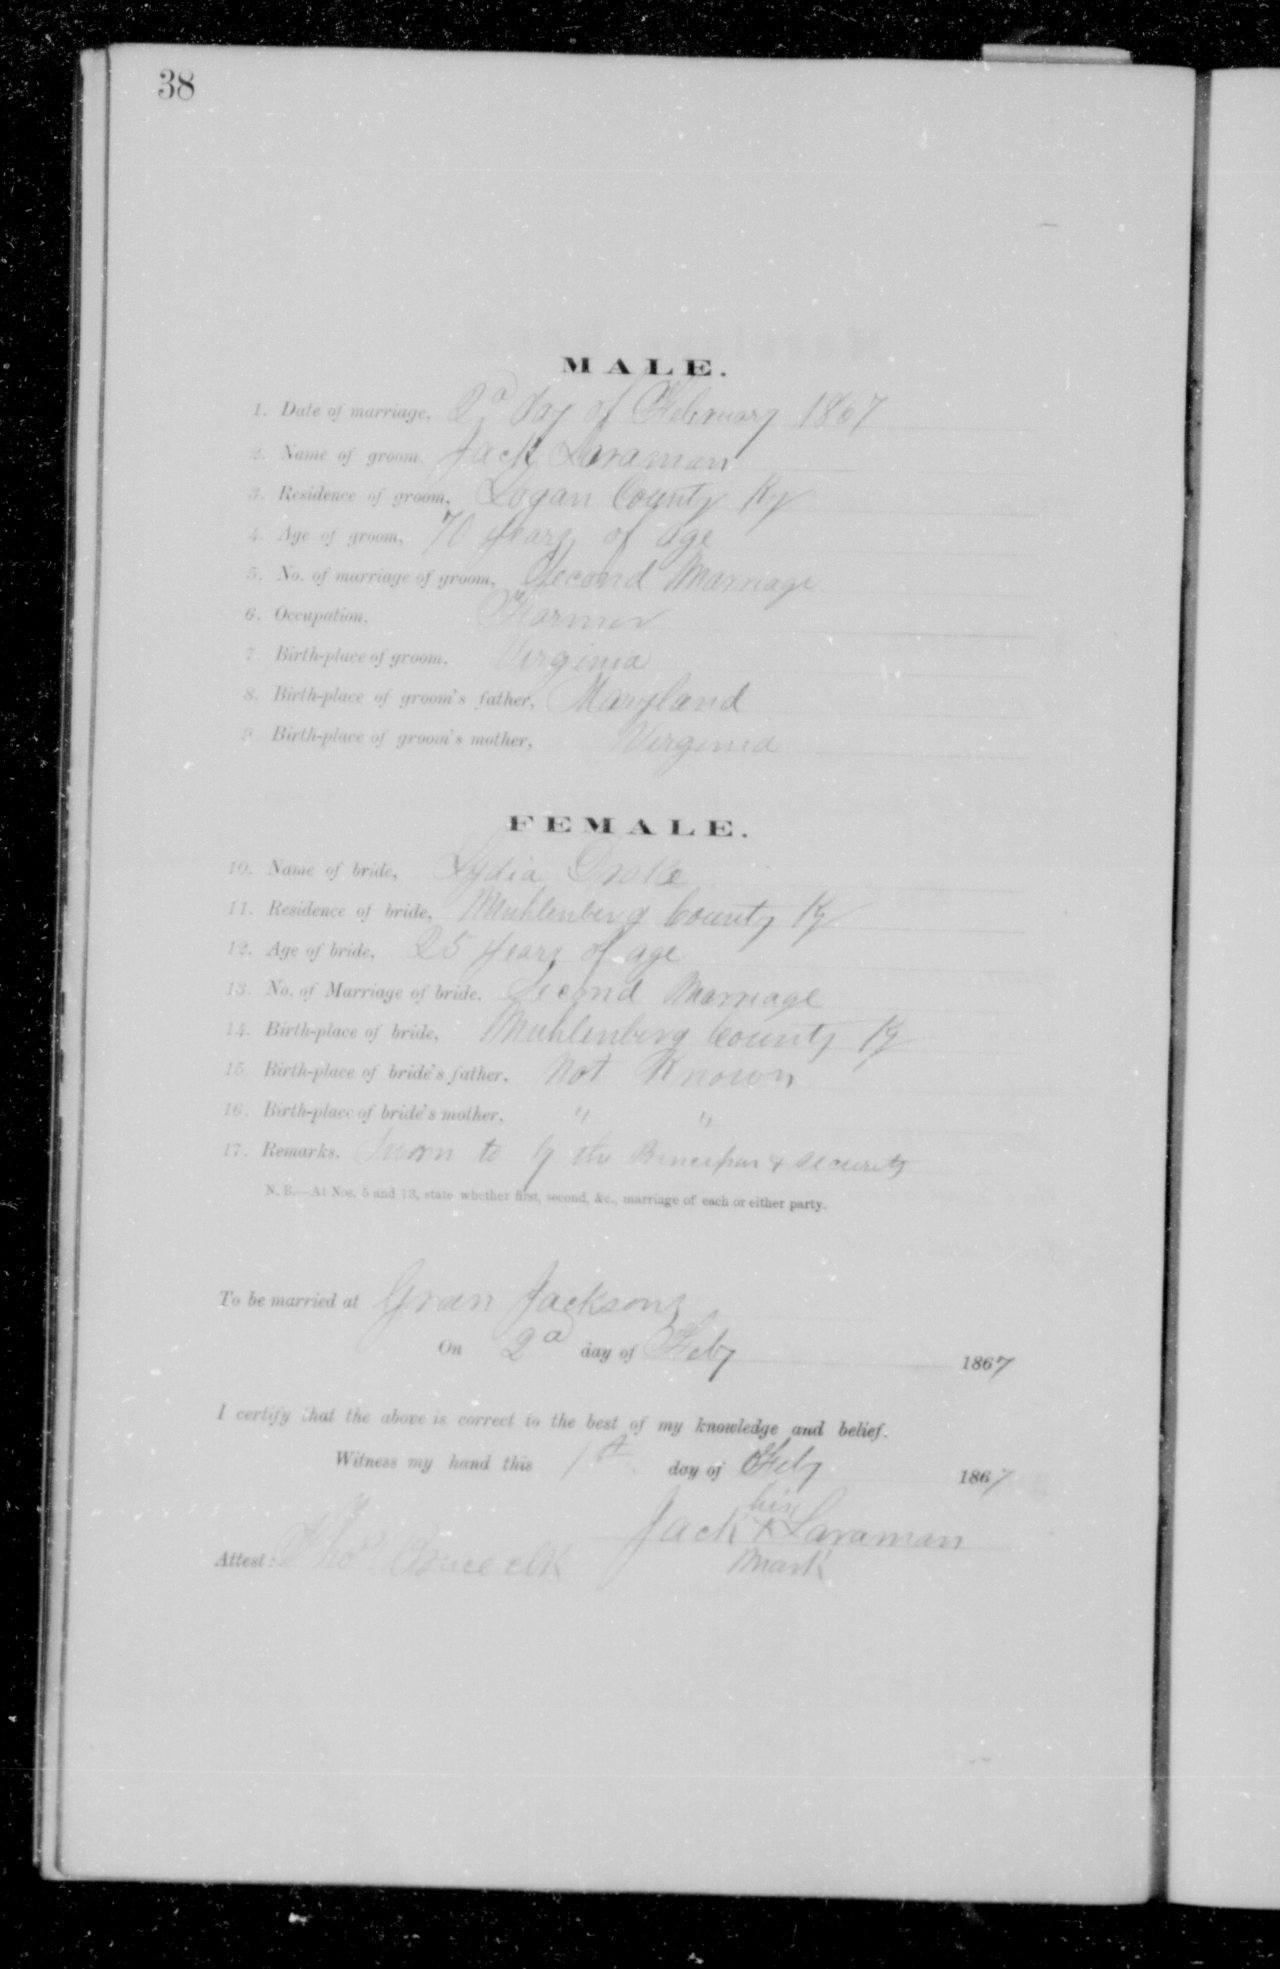 38
MALE.
1. Date of marriage, 2d day of February 1867
2. Name of groom, Jack Laraman
3. Residence of groom, Logan County Ky
4. Age of groom, 70 years of age
5. No. of marriage of groom, Second Marriage
6. Occupation, Farmer
7. Birth-place of groom, Virginia
8. Birth-place of groom's father, Maryland
9. Birth-place of groom's mother, Virginia
FEMALE.
10. Name of bride, Lydia Drake
11. Residence of bride, Muhlenberg County Ky
12. Age of bride, 25 years of age
13. No. of Marriage of bride, Second Marriage
14. Birth-place of bride, Muhlenberg County Ky
15. Birth-place of bride's father, Not Known
16. Birth-place of bride's mother, " "
17. Remarks. Sworn to by the & security
N. B.—At Nos. 5 and 13, state whether first, second, &c., marriage of each or either party.
To be married at Jacksons
On 2d day of Feby 1867
I certify that the above is correct to the best of my knowledge and belief.
Witness my hand this 1st day of Feby 1867
his
Jack x Laraman
Attest: Thos Bruce clk mark